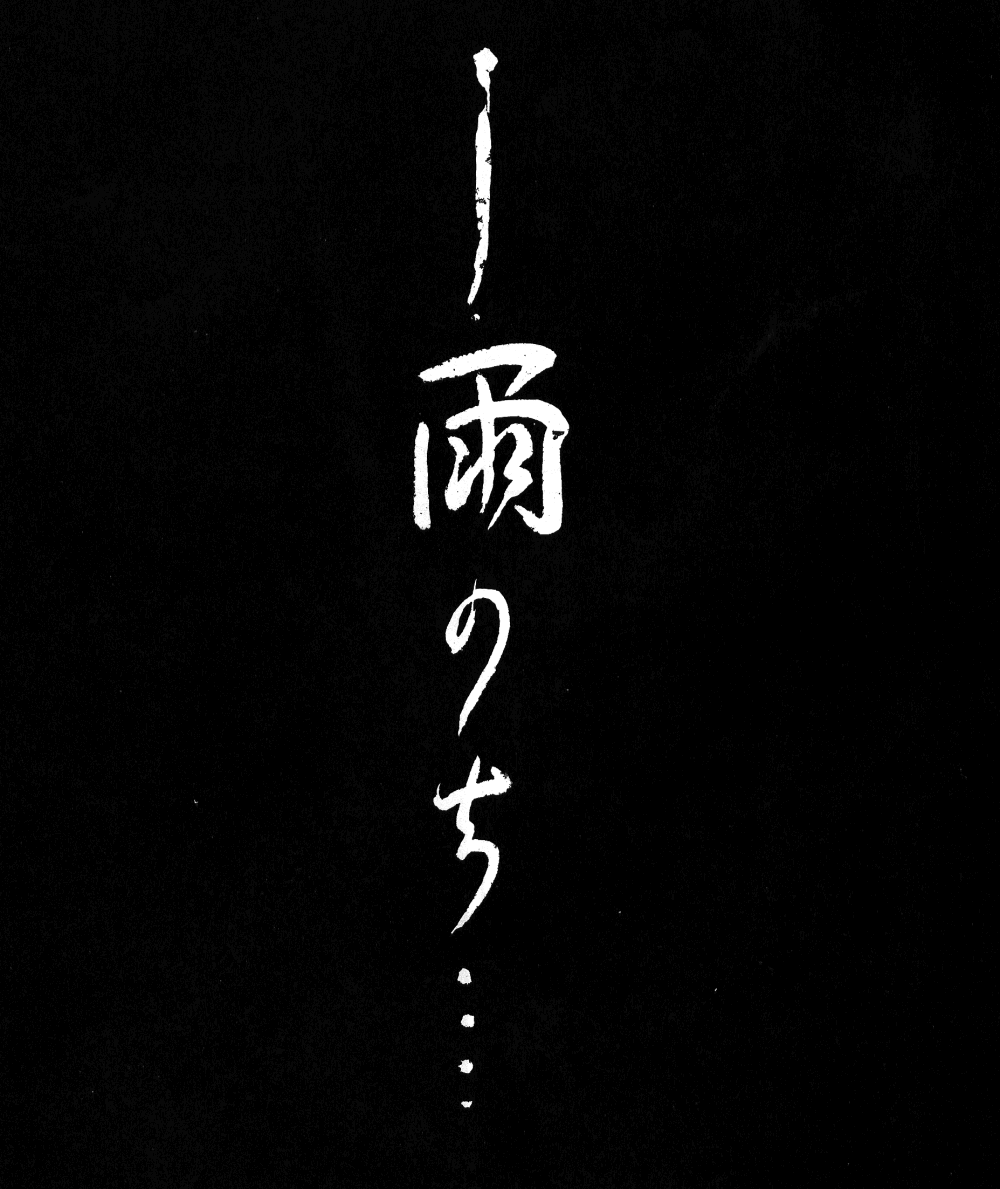 ―雨のち‥‥